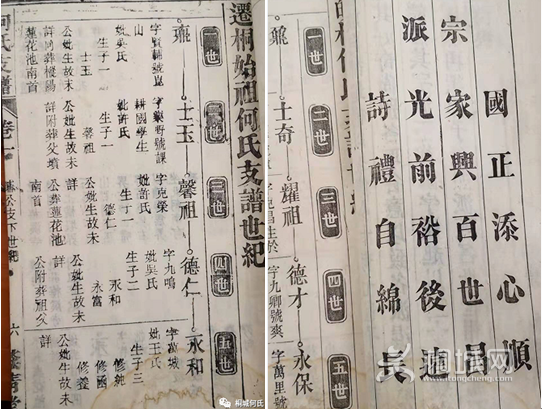 遷桐始祖何氏支譜世紀
一世
二世
三世
四世
五世
士玉
馨祖
德仁
永和
字賢輔號崑
山
妣吳氏
生子一
士玉
公妣生故未
詳同葬樅陽
蓮花池南首
野號課
耕國學生
妣許氏
生子一
馨祖
公妣生故未
詳附葬父墳
字克榮
妣許氏
生子一
德仁
公妣生故未
詳
公葬蓮花池
南首
字九鳴
妣吳氏
生子二
永和
永富
公妣生故未
詳
公附葬祖父
字萬城
妣王氏
生子三
修純
修國
公妣生故未
詳
何氏支譜
卷一
六
桐城何氏
國正添心順
宗家興百世昌
派光前裕後
詩禮自綿長
一世
二世
三世
四世
五世
士奇
耀祖
德才
永保
字九卿號爽
字萬里號
桐城网